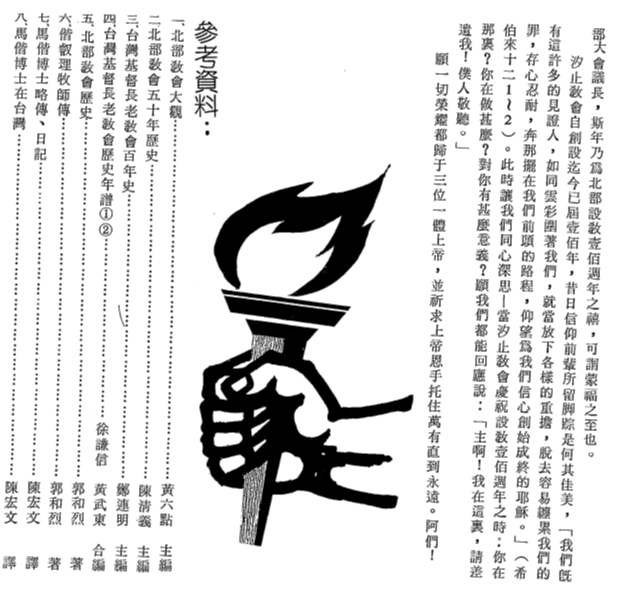 部大會議長，斯年乃爲北部設敎壹佰週年之禧，可謂蒙福之至也。
汐止敎會自創設迄今已屆壹佰年，昔日信仰前輩所留脚踪是何其佳美，「我們旣
有這許多的見證人，如同雲彩圍著我們，就當放下各樣的重擔，脫去容易纏累我們的
罪，存心忍耐，奔那擺在我們前頭的路程，仰望爲我們信心創始成終的耶穌。」（希
伯來十二1～2）。此時讓我們同心深思—當汐止敎會慶祝設敎壹佰週年之時：你在
那裏？你在做甚麼？對你有甚麼意義？願我們都能回應說：「主啊！我在這裏，請差
遣我！僕人敬聽。」
願一切榮耀都歸于三位一體上帝，並祈求上帝恩手托住萬有直到永遠。阿們！
參考資料：
一、北部敎會大觀……黃六點　主編
二、北部敎會五十年歷史……陳淸義　主編
三、台灣基督長老敎會百年史……鄭連明　主編
四、台灣基督長老敎會歷史年譜①②……徐謙信　黃武東　合編
五、北部敎會歷史……郭和烈　著
六、偕叡理牧師傳……郭和烈　著
七、馬偕博士略傳、日記……陳宏文　譯
八、馬偕博士在台灣……陳宏文　譯